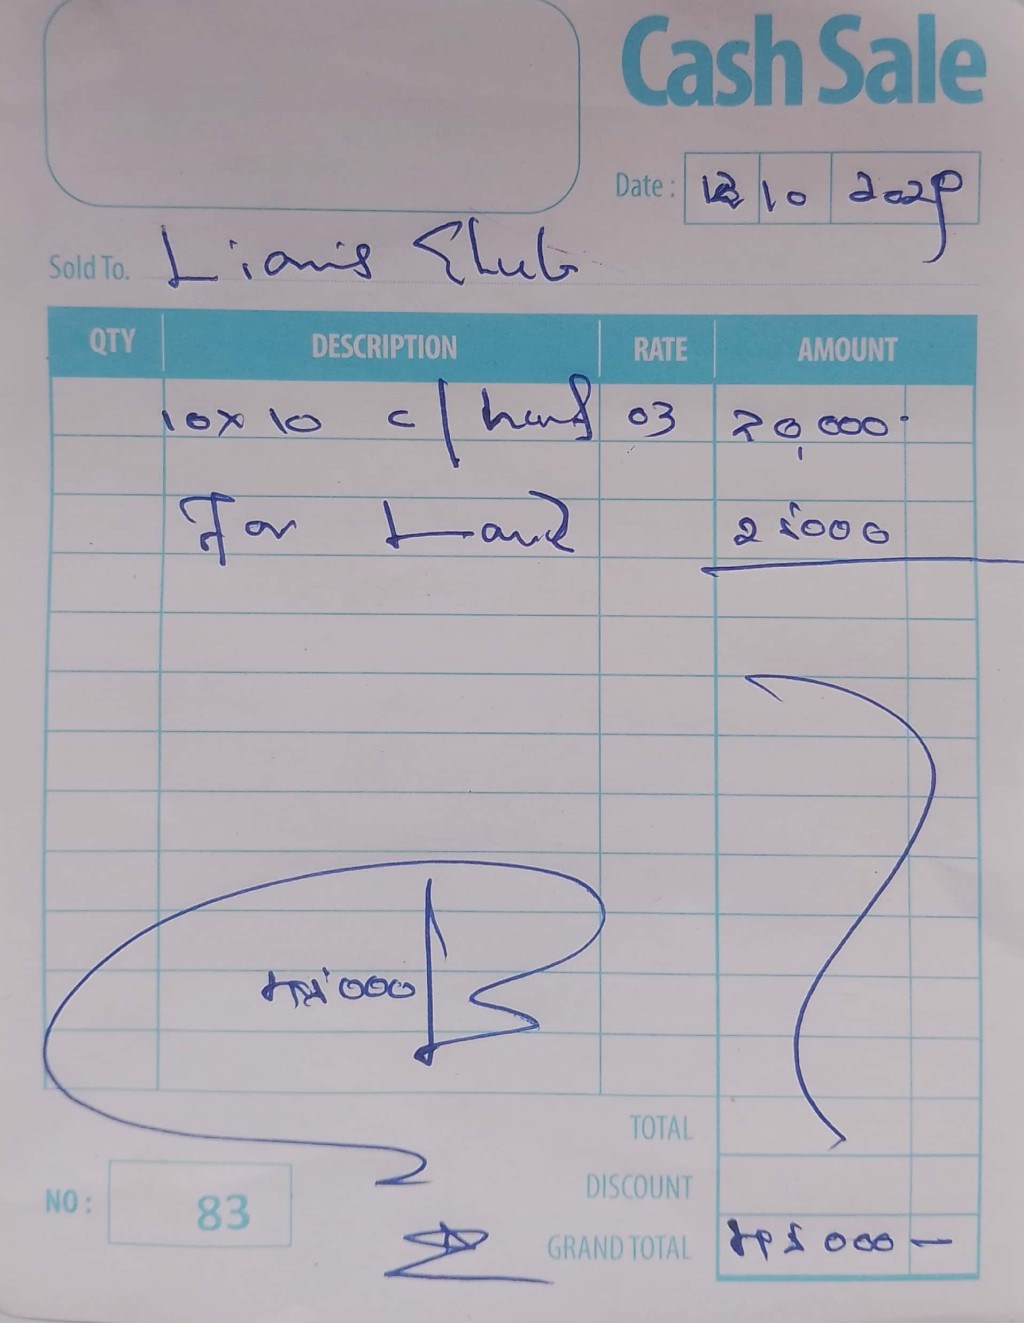 Cash Sale
Date: 10
Sold To. Lionis Club
QTY DESCRIPTION RATE AMOUNT
10x10 c/ 03 20,000
For Land 25000
000
TOTAL
DISCOUNT
NO: 83
GRAND TOTAL 000 —